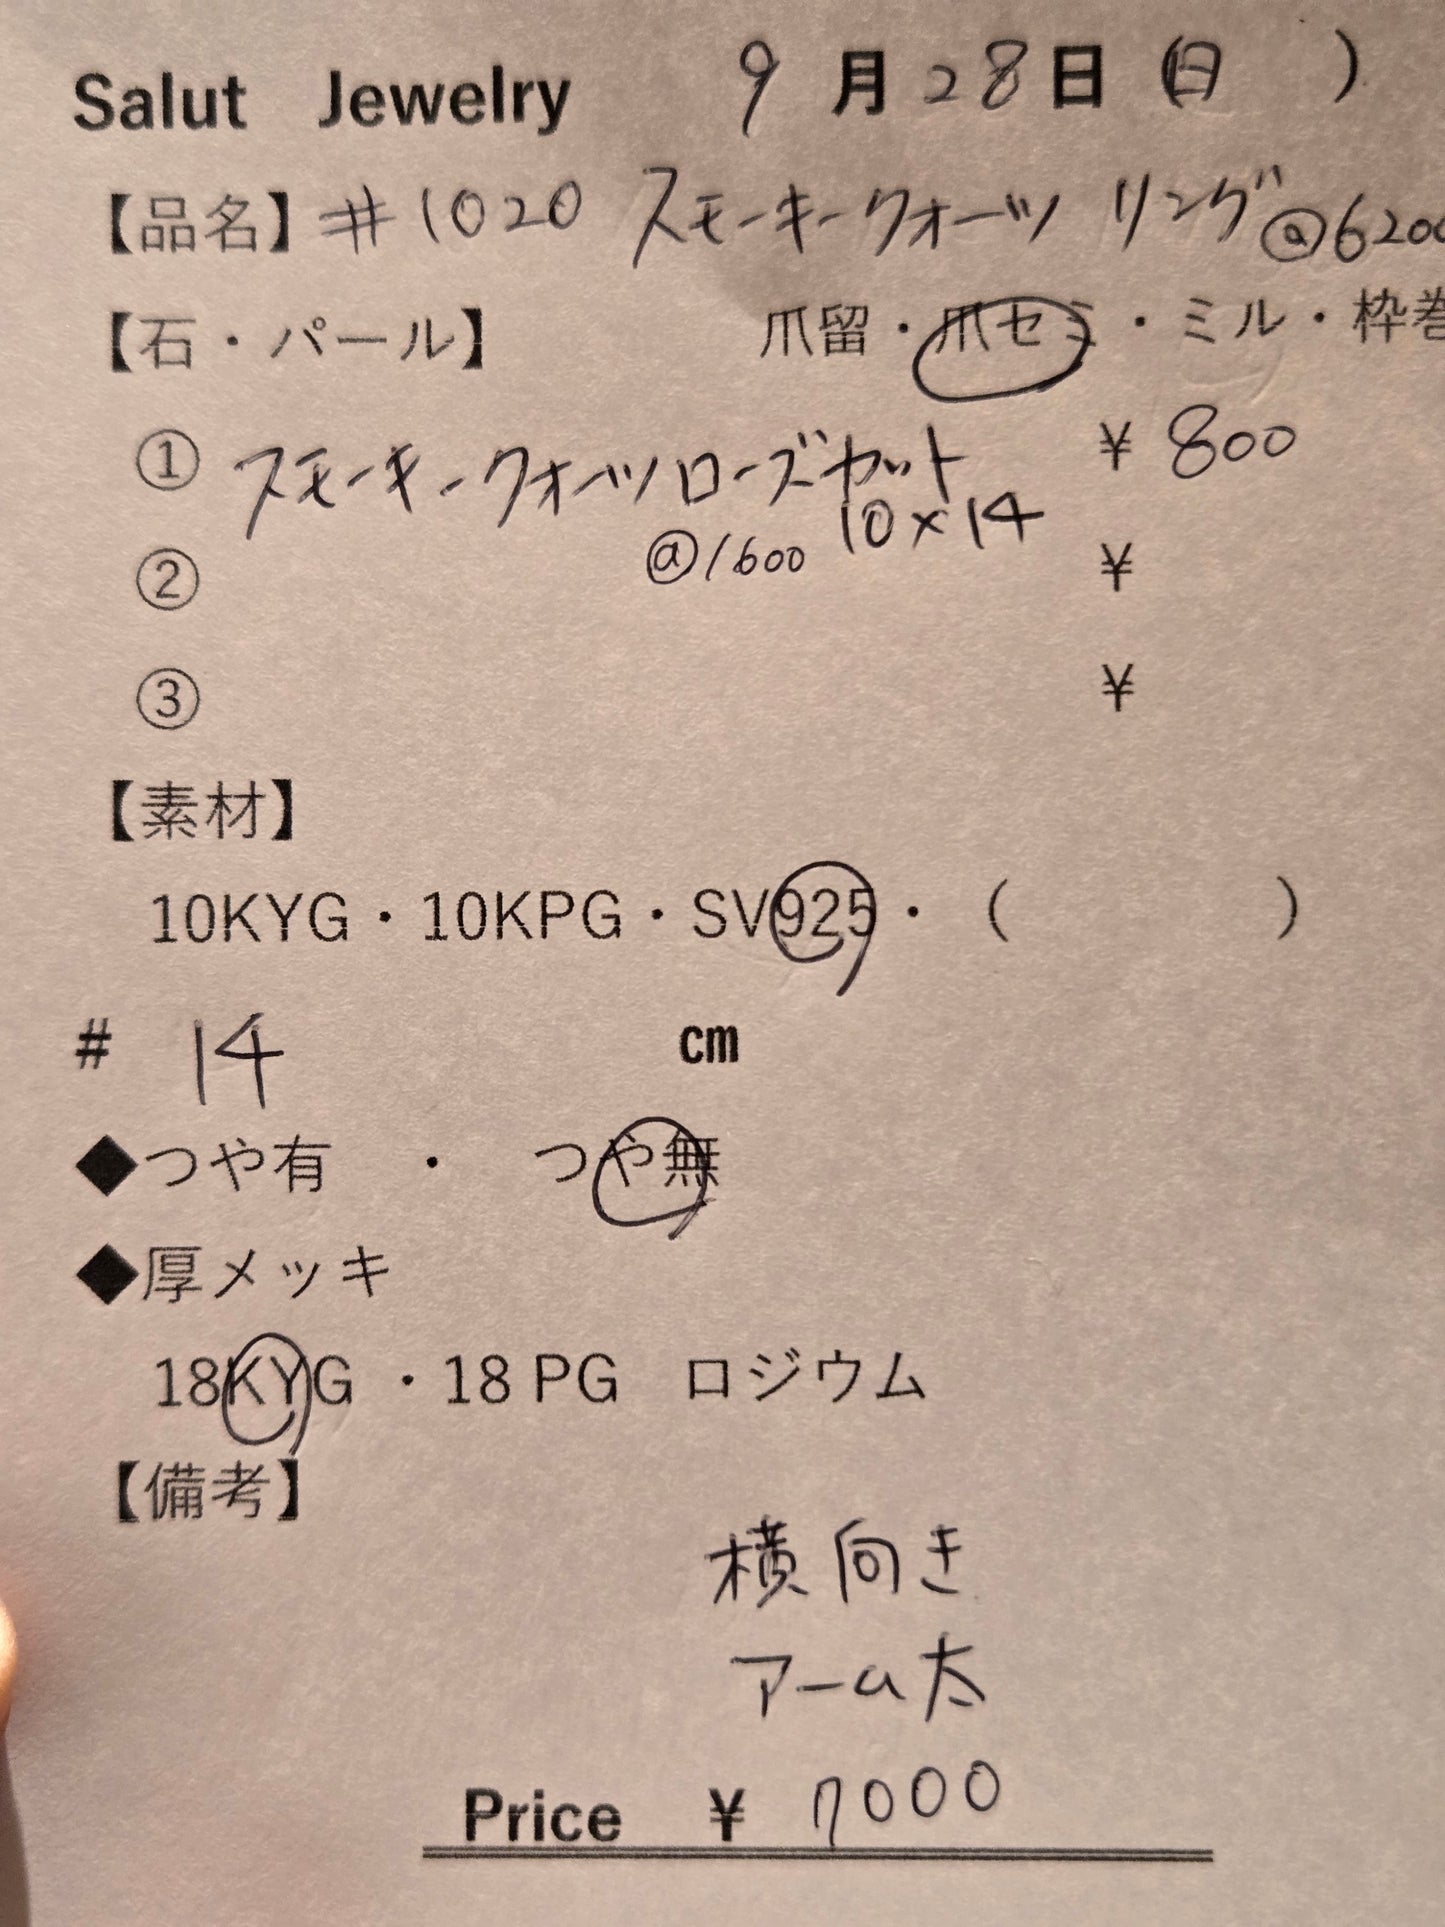 Salut Jewelry 9 月 28 日 (日 )
【品名】#1020 スモーキークォーツ リング @6200
【石・パール】 爪留・爪セミ・ミル・枠巻
① スモーキークォーツローズカット ¥ 800
10×14
② @1600 ¥
③ ¥
【素材】
10KYG・10KPG・SV925・( )
# 14 cm
◆つや有 ・ つや無
◆厚メッキ
18KYG ・18 PG ロジウム
【備考】
横向き
アーム太
Price ¥ 7000